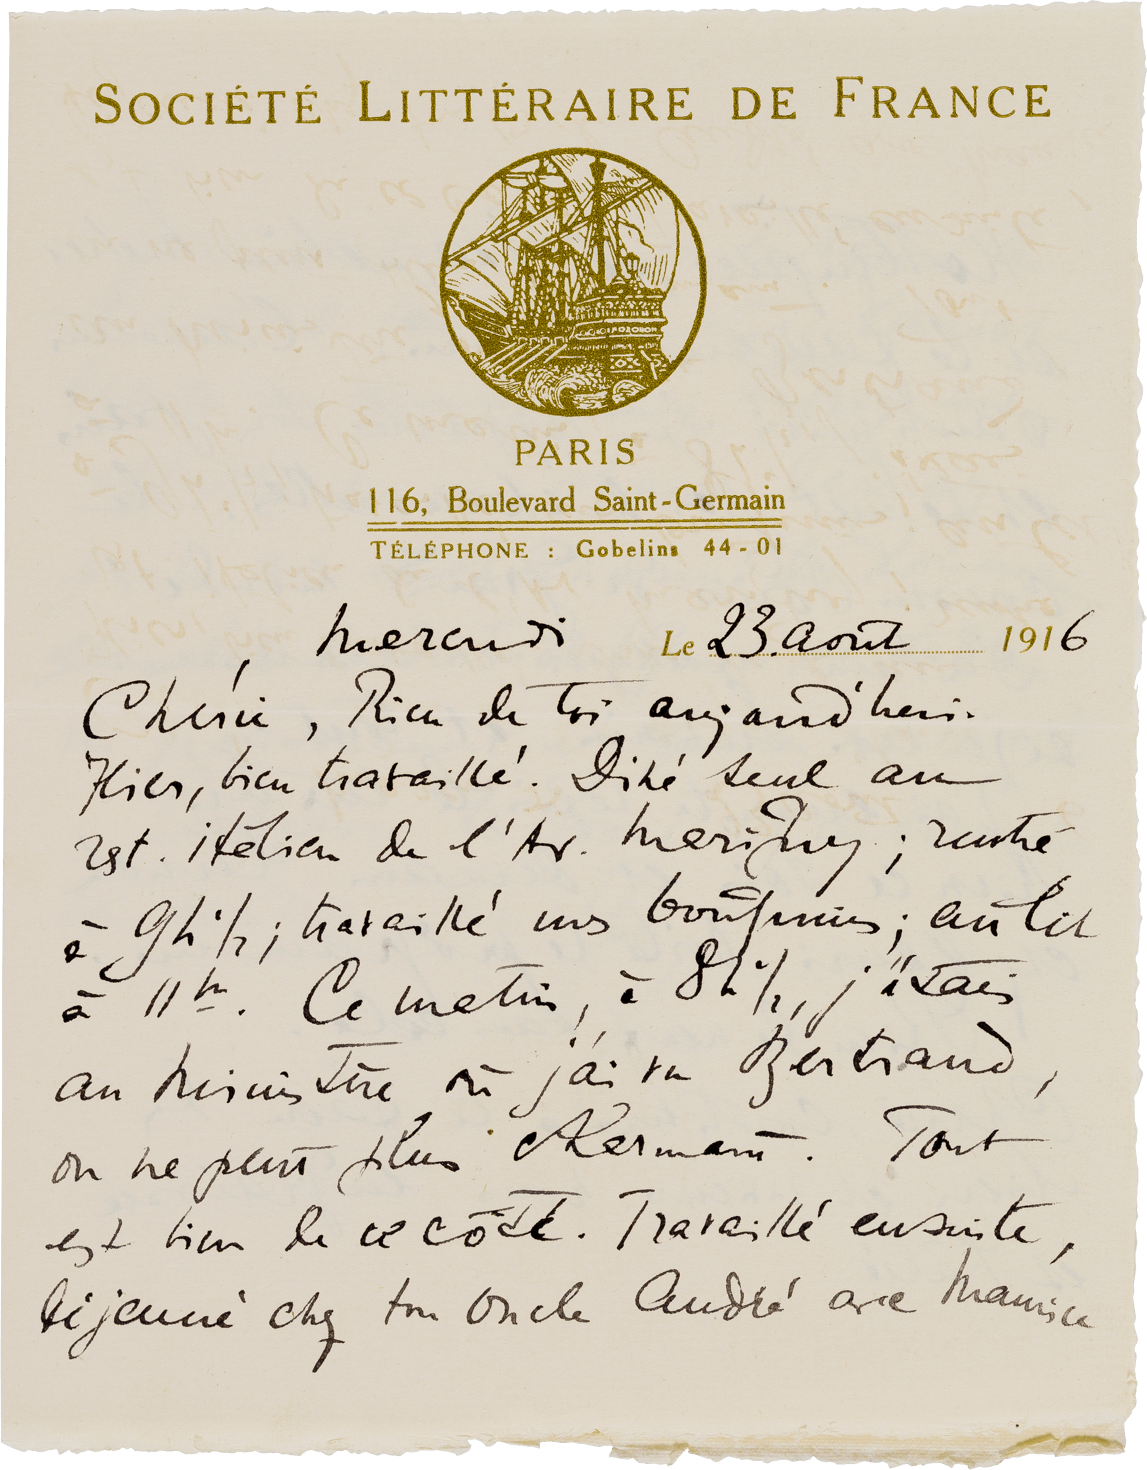 SOCIÉTÉ LITTÉRAIRE DE FRANCE
PARIS
116, Boulevard Saint-Germain
TÉLÉPHONE : Gobelins 44-01
mercredi Le 23 août 1916
Chérie, Rien de toi aujourd'hui.
Hier, bien travaillé. Dîné seul au
rest. italien de l'Av. Marigny ; rentré
à 9h 1/2 ; travaillé nos ; au lit
à 11h. Ce matin, à 8h 1/2, j'étais
au Ministère où j'ai vu Bertrand,
on ne peut plus charmant. Tout
est bien de ce côté. Travaillé ensuite,
déjeuné chez ton oncle André avec Maurice